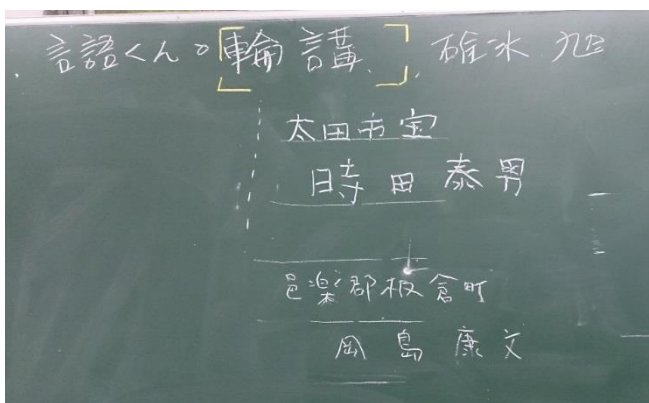 言語くんの輪講、碓氷 旭
太田市宝
時田泰男
邑楽郡板倉町
岡島康文